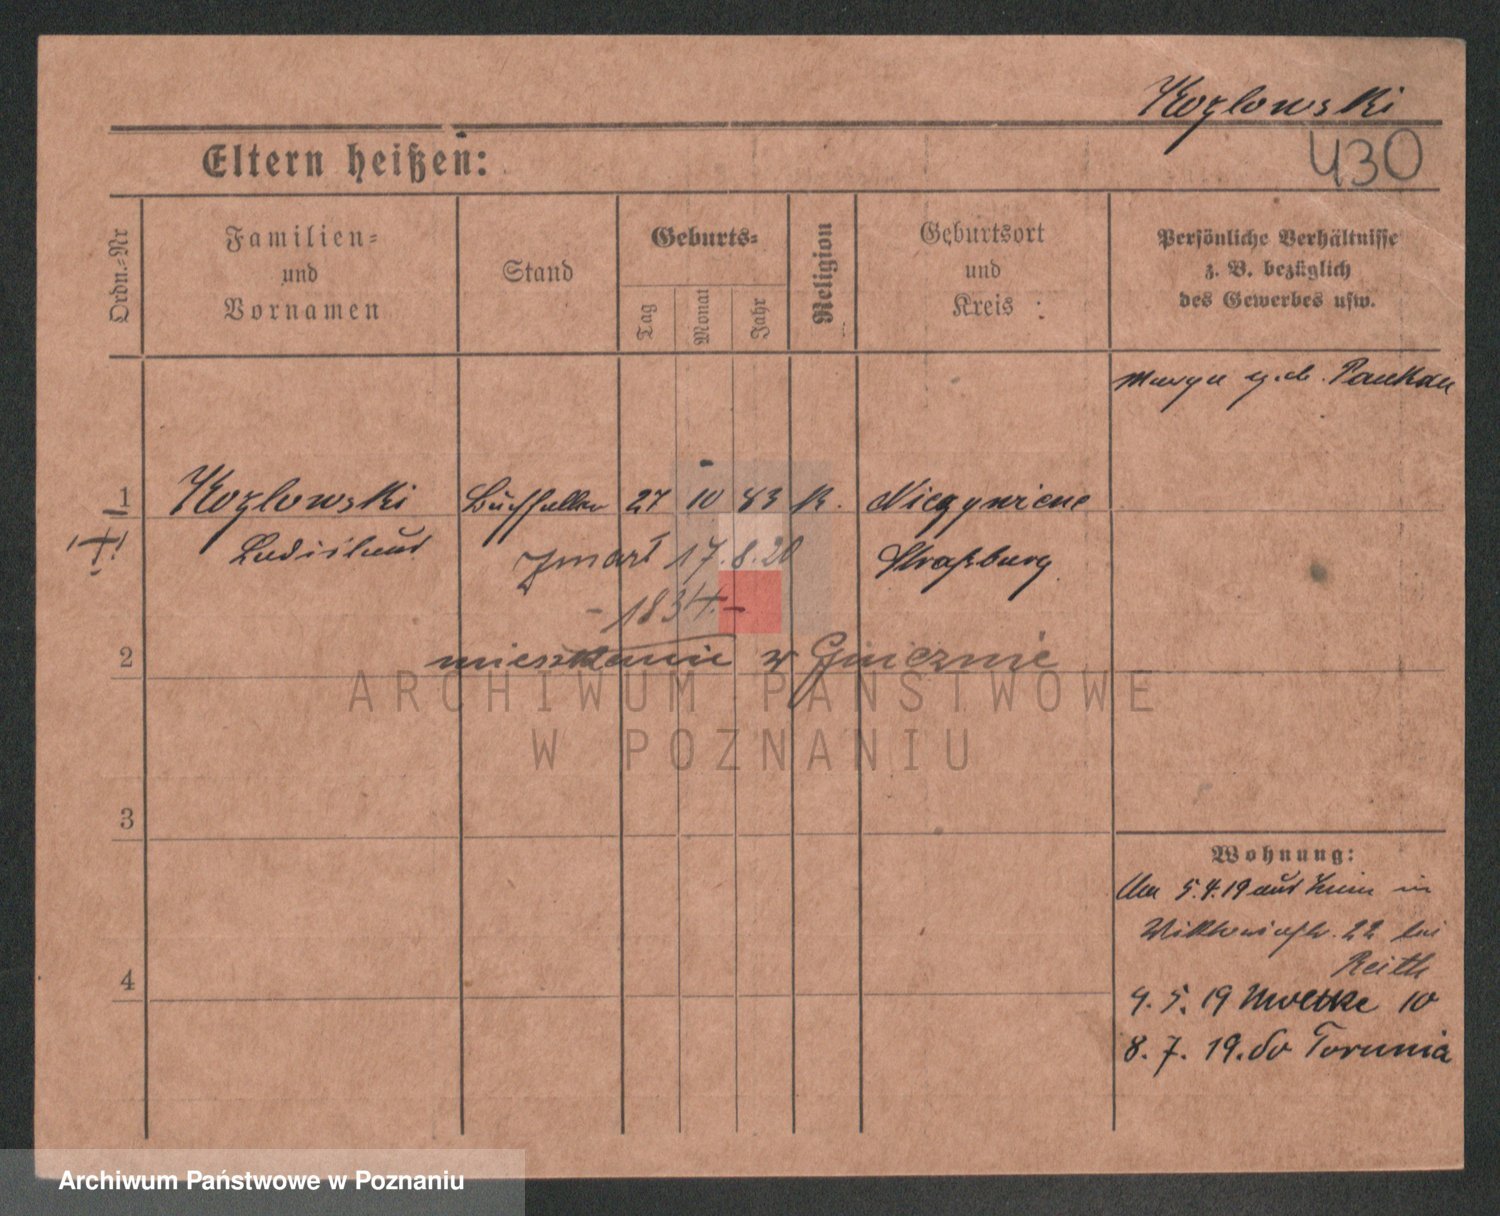 Kozlowski
Eltern heißen:
430
Ordn.=Nr
Familien=
und
Vornamen
Stand
Geburts=
Tag
Monat
Jahr
Religion
Geburtsort
und
Kreis :
Persönliche Verhältnisse
z. B. bezüglich
des Gewerbes usw.
1
Kozlowski
Ladislaus
Buchhalter
27 10 83
K.
Straßburg
zmarł 17.8.20
- 1834. -
2
mieszkanie w Gnieznie
ARCHIWUM PAŃSTWOWE
W POZNANIU
3
Wohnung:
5.4.19 aus in
22 bei
Reith
4
4. 5. 19 Moltke 10
8. 7. 19. do Torunia
Archiwum Państwowe w Poznaniu